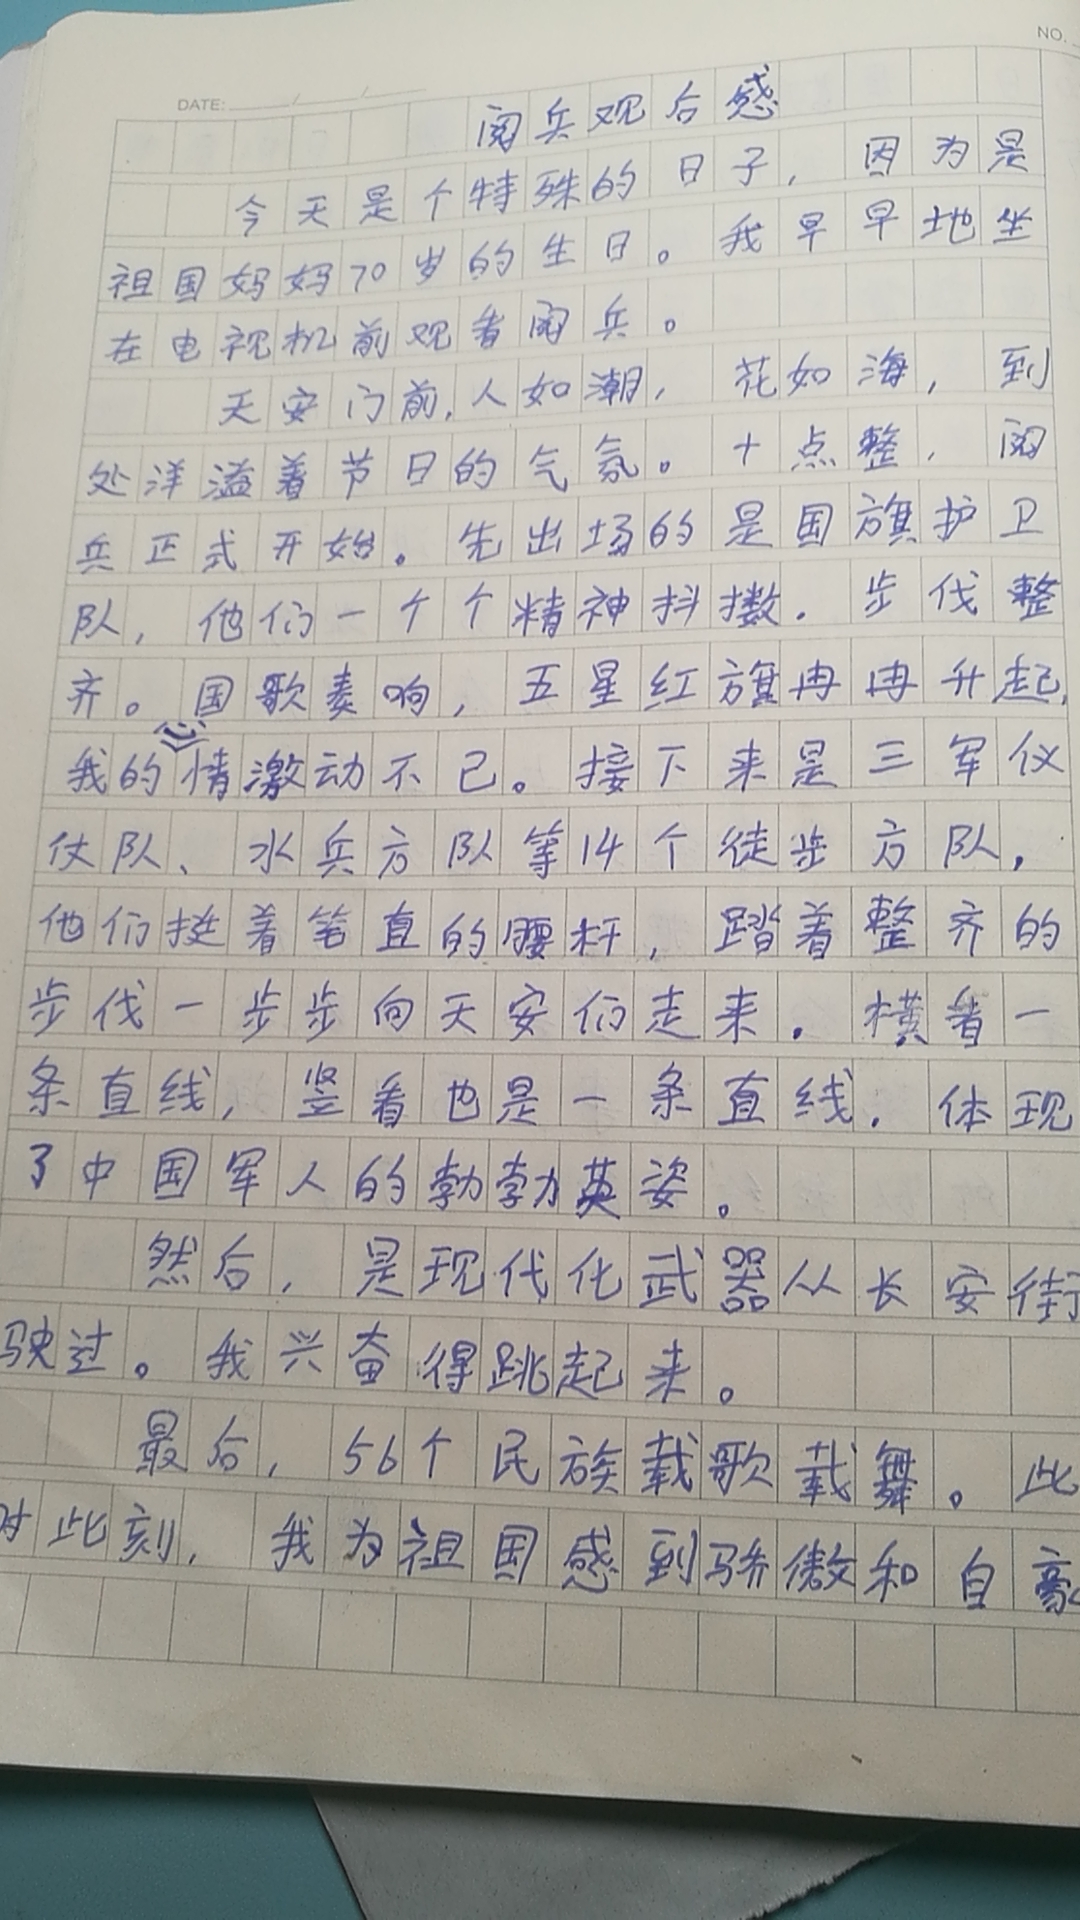 NO.
DATE:
阅兵观后感
今天是个特殊的日子，因为是
祖国妈妈70岁的生日。我早早地坐
在电视机前观看阅兵。
天安门前，人如潮，花如海，到
处洋溢着节日的气氛。十点整，阅
兵正式开始。先出场的是国旗护卫
队，他们一个个精神抖擞．步伐整
齐。国歌奏响，五星红旗冉冉升起，
我的心情激动不已。接下来是三军仪
仗队、水兵方队等14个徒步方队，
他们挺着笔直的腰杆，踏着整齐的
步伐一步步向天安们走来．横看一
条直线，竖看也是一条直线．体现
了中国军人的勃勃英姿。
然后，是现代化武器从长安街
驶过。我兴奋得跳起来。
最后，56个民族载歌载舞。此
时此刻，我为祖国感到骄傲和自豪